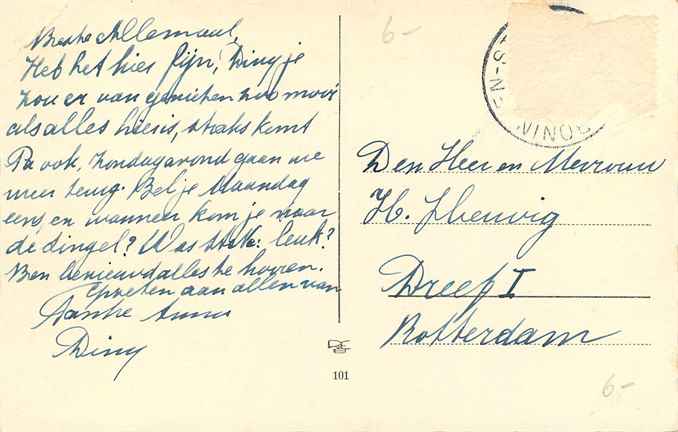 Beste Allemaal,
Heb het hier fijn, Dingje
zou er van genieten zoo mooi
als alles hier is, straks komt
Pa ook. Zondagavond gaan we
weer terug. Bel je Maandag
eens en wanneer kom je naar
de dingel? Was leuk?
Ben benieuwd alles te hooren.
Groeten aan allen van
Tante Anna
Diny
6-
Den Heer en Mevrouw
H.
Dreef I
Rotterdam
101
6-